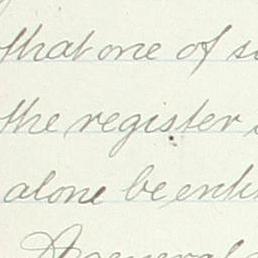 that one of
the register
alone be
A general